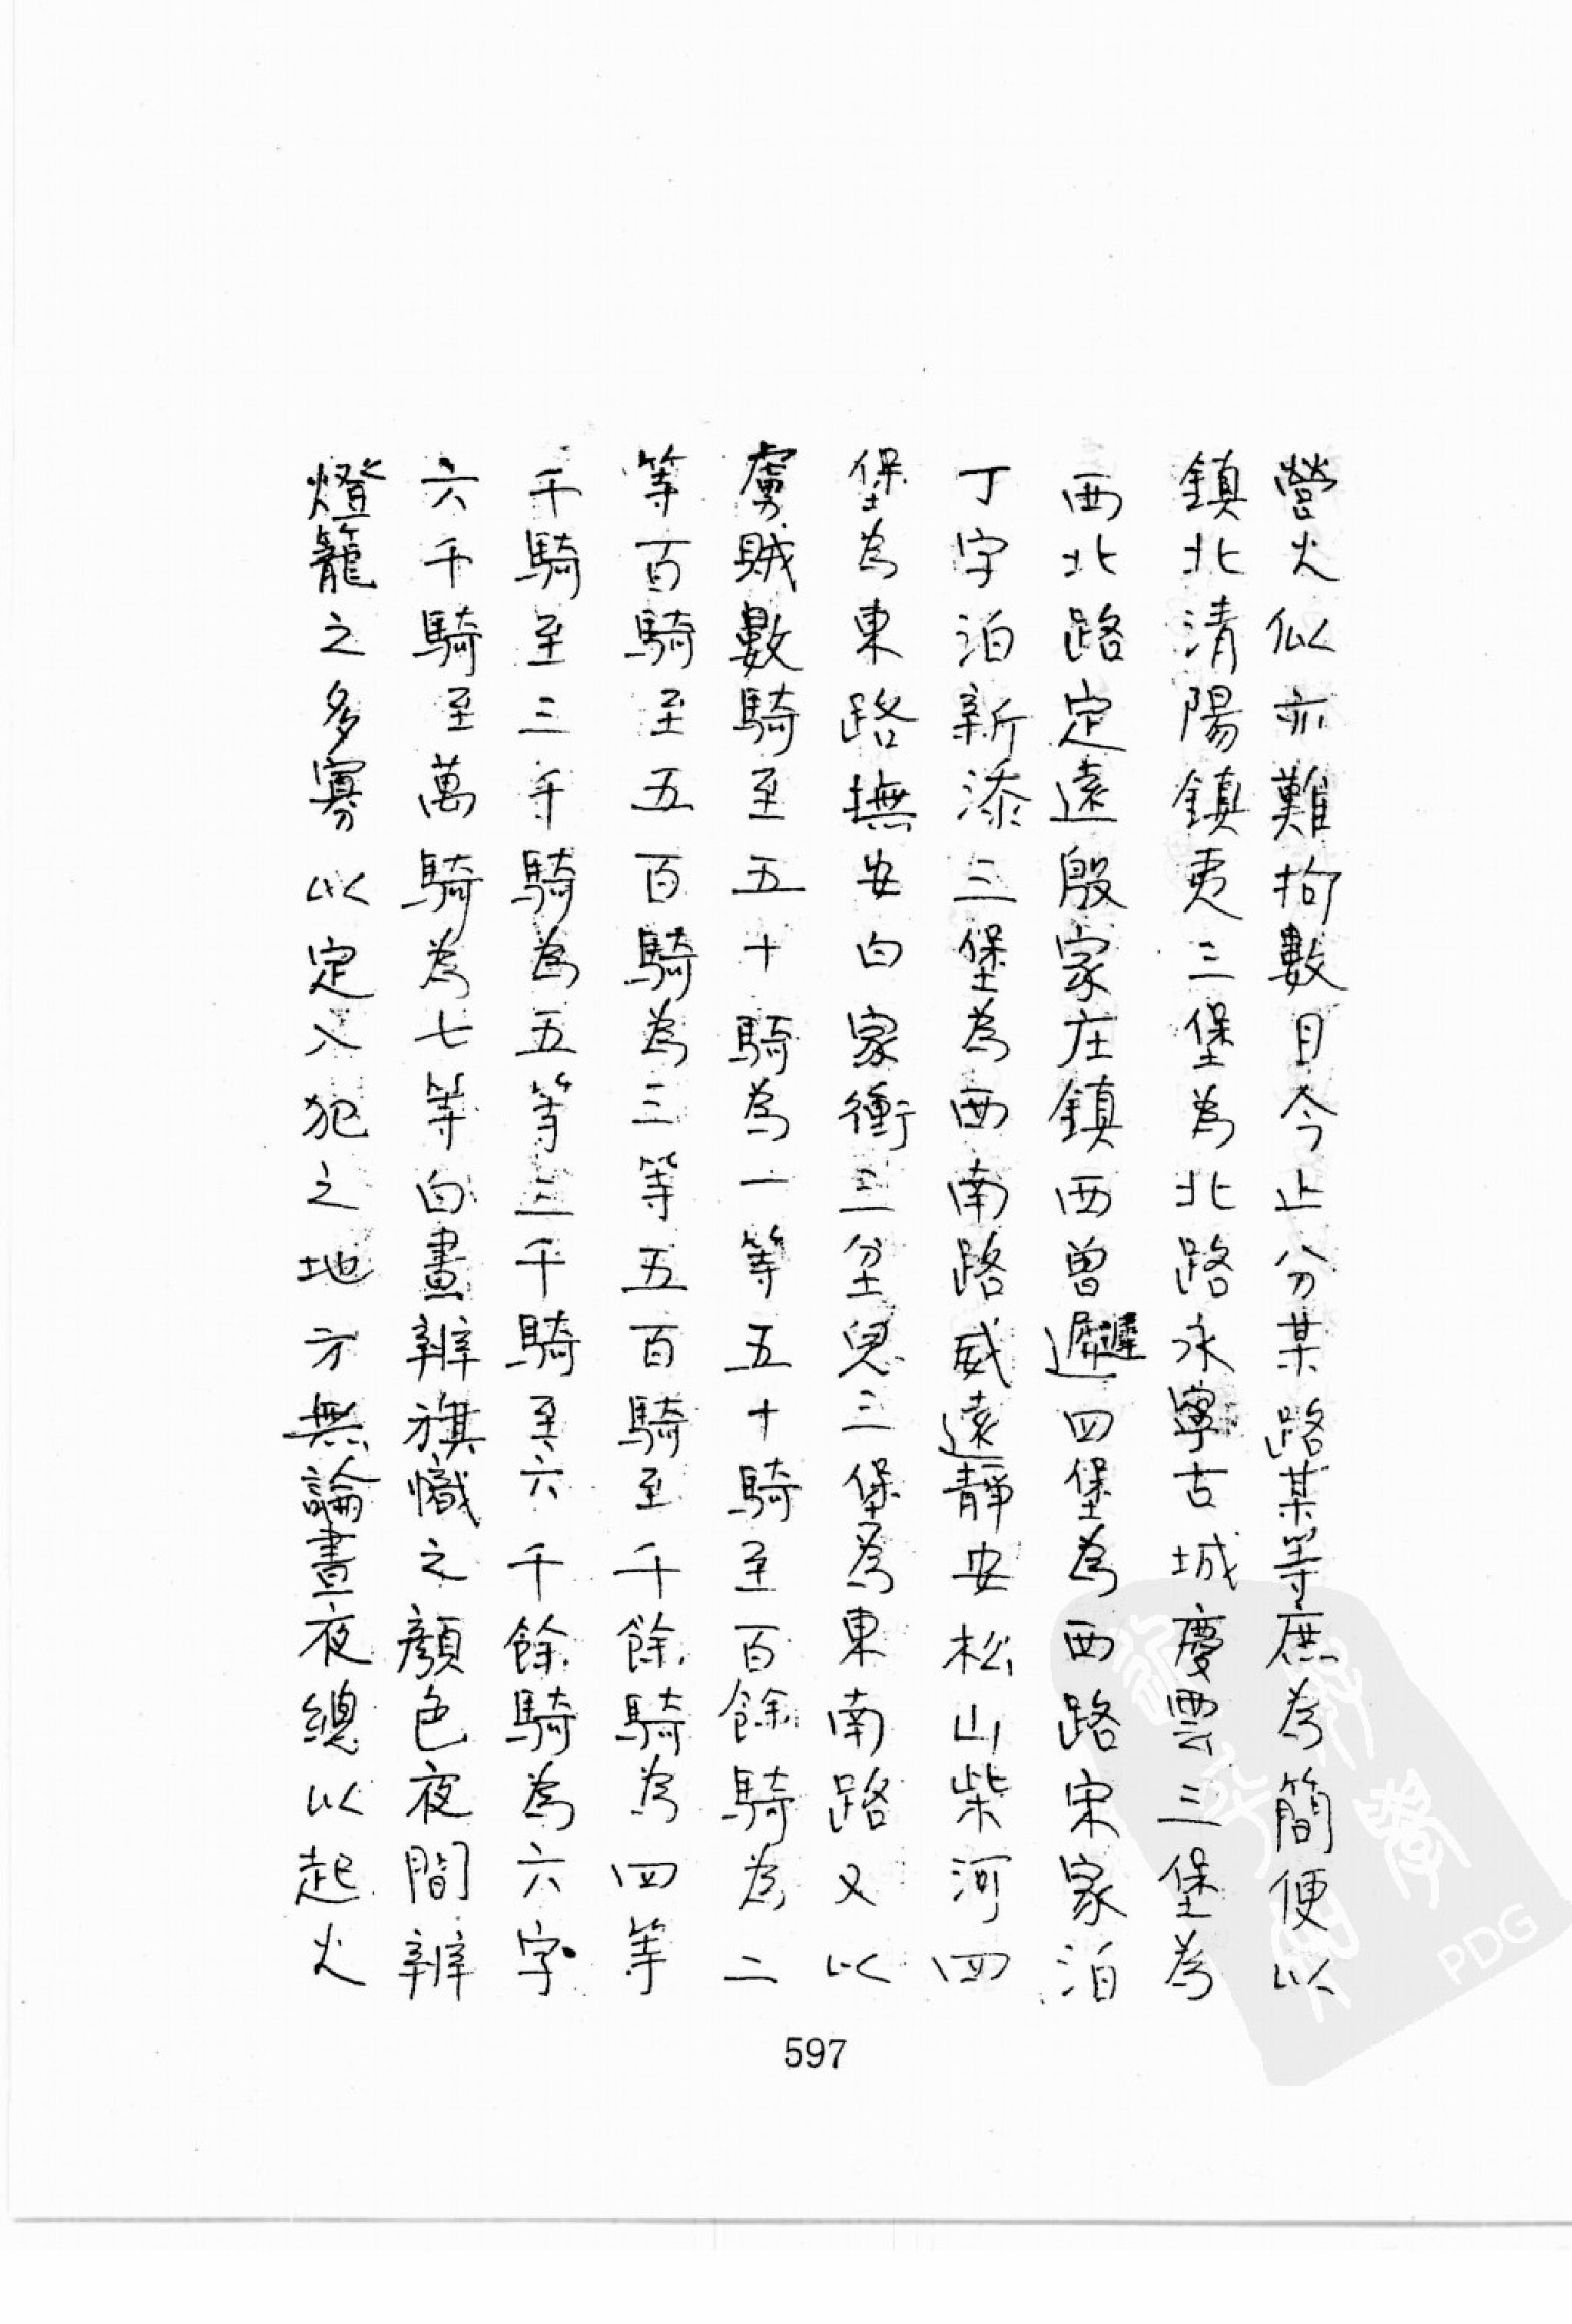 營火似亦難拘數目今止分某路某等庶為簡便以
鎮北清陽鎮夷三堡為北路永寧古城慶雲三堡為
西北路定遠殷家庄鎮西曾遲四堡為西路宋家泊
丁字泊新添三堡為西南路威遠靜安松山柴河四
堡為東路撫安白家衝三岔兒三堡為東南路又以
虜賊數騎至五十騎為一等五十騎至百餘騎為二
等百騎至五百騎為三等五百騎至千餘騎為四等
千騎至三千騎為五等三千騎至六千餘騎為六字
六千騎至萬騎為七等白晝辨旗幟之顏色夜間辨
燈籠之多寡以定入犯之地方無論晝夜總以起火
597
PDG